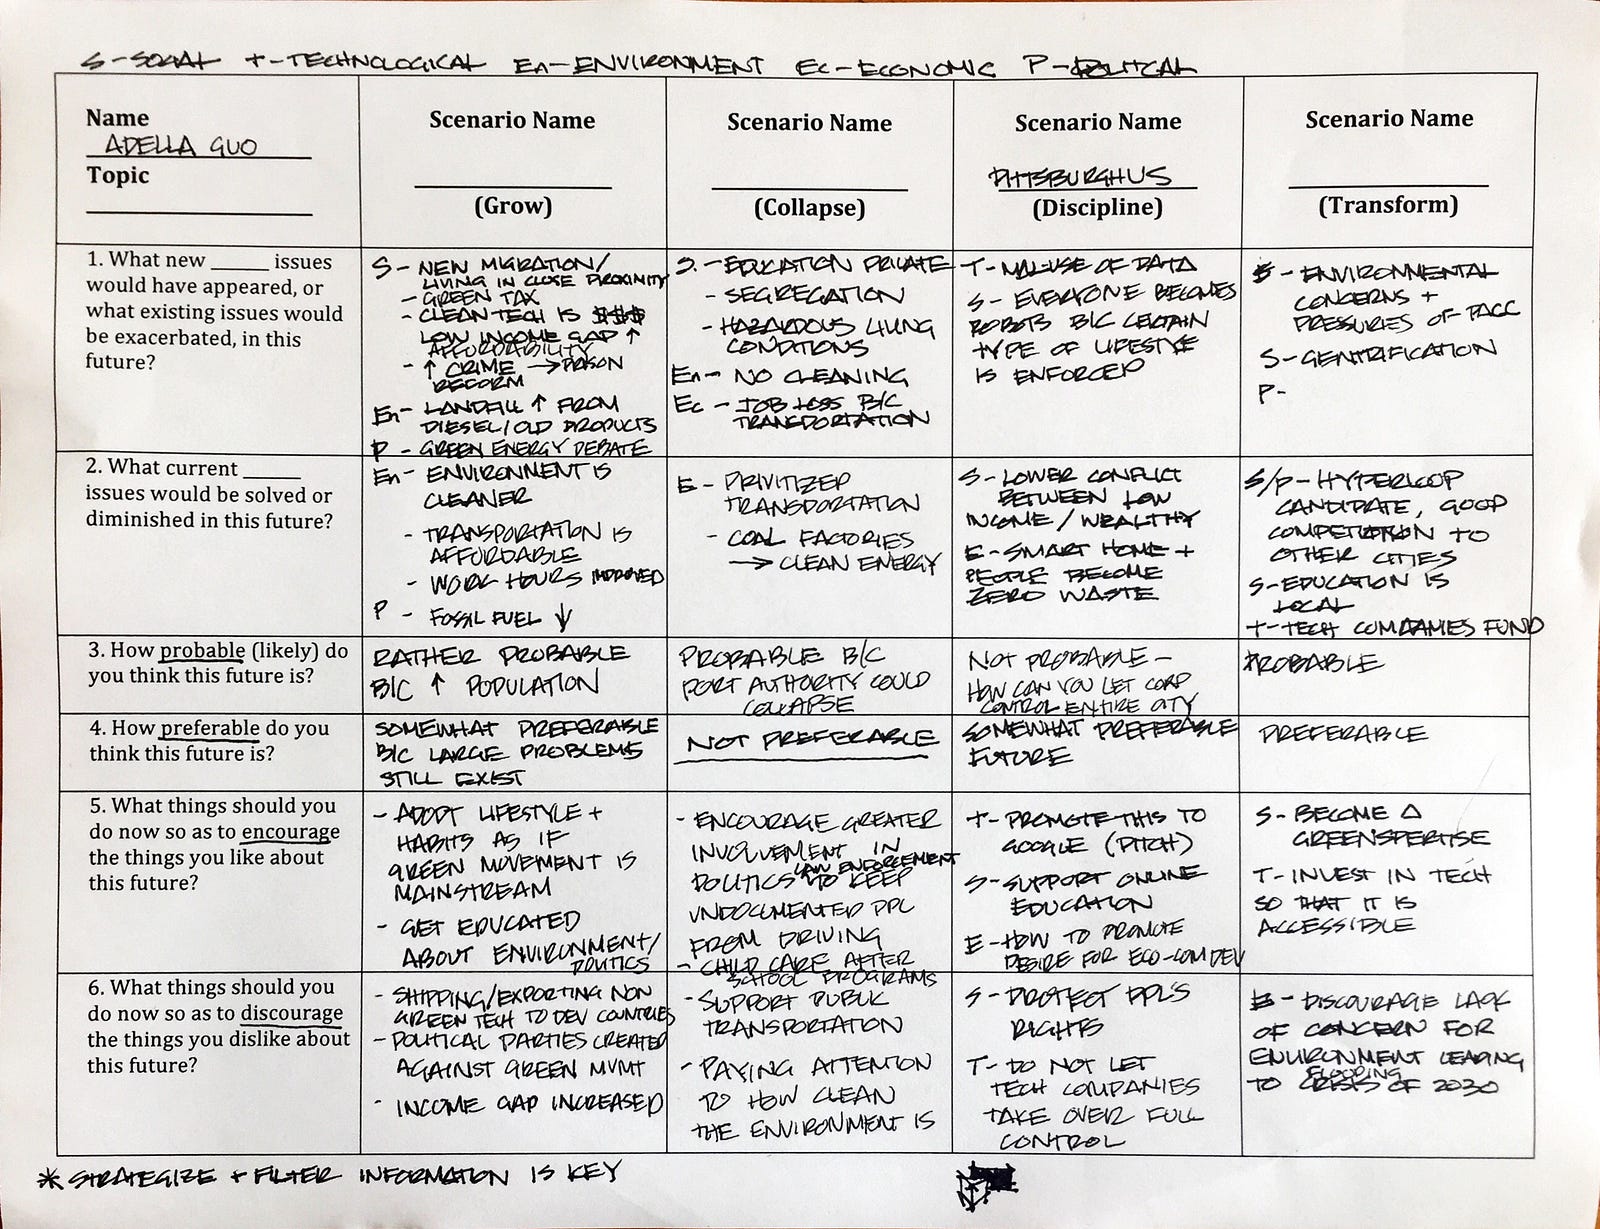 S-SOCIAL T-TECHNOLOGICAL En-ENVIRONMENT Ec-ECONOMIC P-POLITCAL
Name
ADELLA GUO
Topic
Scenario Name
(Grow)
Scenario Name
(Collapse)
Scenario Name
PITTSBURGHUS
(Discipline)
Scenario Name
(Transform)
1. What new ______ issues
would have appeared, or
what existing issues would
be exacerbated, in this
future?
S - NEW MIGRATION/
LIVING IN CLOSE PROXIMITY
- GREEN TAX
- CLEAN TECH IS $$$
LOW INCOME GAP ↑
AFFORDABILITY
- ↑ CRIME → PRISON
REFORM
En- LANDFILL ↑ FROM
DIESEL/OLD PRODUCTS
P - GREEN ENERGY DEBATE
S. - EDUCATION PRIVATE
- SEGREGATION
- HAZARDOUS LIVING
CONDITIONS
En- NO CLEANING
Ec - JOB LOSS B/C
TRANSPORTATION
T- MAL-USE OF DATA
S - EVERYONE BECOMES
ROBOTS B/C CERTAIN
TYPE OF LIFESTYE
IS ENFORCED
- ENVIRONMENTAL
CONCERNS +
PRESSURES OF PACC
S-GENTRIFICATION
P-
2. What current ______
issues would be solved or
diminished in this future?
En- ENVIRONMENT IS
CLEANER
- TRANSPORTATION IS
AFFORDABLE
- WORK HOURS IMPROVED
P - FOSSIL FUEL ↓
E - PRIVITIZED
TRANSPORTATION
- COAL FACTORIES
→ CLEAN ENERGY
S- LOWER CONFLICT
BETWEEN LOW
INCOME/WEALTHY
E - SMART HOME +
PEOPLE BECOME
ZERO WASTE
S/P - HYPERLOOP
CANDIDATE, GOOD
COMPETITION TO
OTHER CITIES
S-EDUCATION IS
LOCAL
T-TECH COMPANIES FUND
3. How probable (likely) do
you think this future is?
RATHER PROBABLE
B/C ↑ POPULATION
PROBABLE B/C
PORT AUTHORITY COULD
COLLAPSE
NOT PROBABLE -
HOW CAN YOU LET CORP
CONTROL ENTIRE CITY
PROBABLE
4. How preferable do you
think this future is?
SOMEWHAT PREFERABLE
B/C LARGE PROBLEMS
STILL EXIST
NOT PREFERABLE
SOMEWHAT PREFERABLE
FUTURE
PREFERABLE
5. What things should you
do now so as to encourage
the things you like about
this future?
- ADOPT LIFESTYLE +
HABITS AS IF
GREEN MOVEMENT IS
MAINSTREAM
- GET EDUCATED
ABOUT ENVIRONMENT/
POLITICS
- ENCOURAGE GREATER
INVOLVEMENT IN
LAW ENFORCEMENT
POLITICS TO KEEP
UNDOCUMENTED PPL
FROM DRIVING
- CHILD CARE AFTER
SCHOOL PROGRAMS
T- PROMOTE THIS TO
GOOGLE (PITCH)
S-SUPPORT ONLINE
EDUCATION
E-HOW TO PROMOTE
DESIRE FOR ECO-COM DEV
S-BECOME A
GREENSPERTISE
T-INVEST IN TECH
SO THAT IT IS
ACCESSIBLE
6. What things should you
do now so as to discourage
the things you dislike about
this future?
- SHIPPING/EXPORTING NON
GREEN TECH TO DEV COUNTRIES
- POLITICAL PARTIES CREATED
AGAINST GREEN MVMT
- INCOME GAP INCREASED
- SUPPORT PUBLIC
TRANSPORTATION
- PAYING ATTENTION
TO HOW CLEAN
THE ENVIRONMENT IS
S - PROTECT PPL'S
RIGHTS
T- DO NOT LET
TECH COMPANIES
TAKE OVER FULL
CONTROL
E - DISCOURAGE LACK
OF CONCERN FOR
ENVIRONMENT LEADING
FLOODING
TO CRISIS OF 2030
* STRATEGIZE + FILTER INFORMATION IS KEY